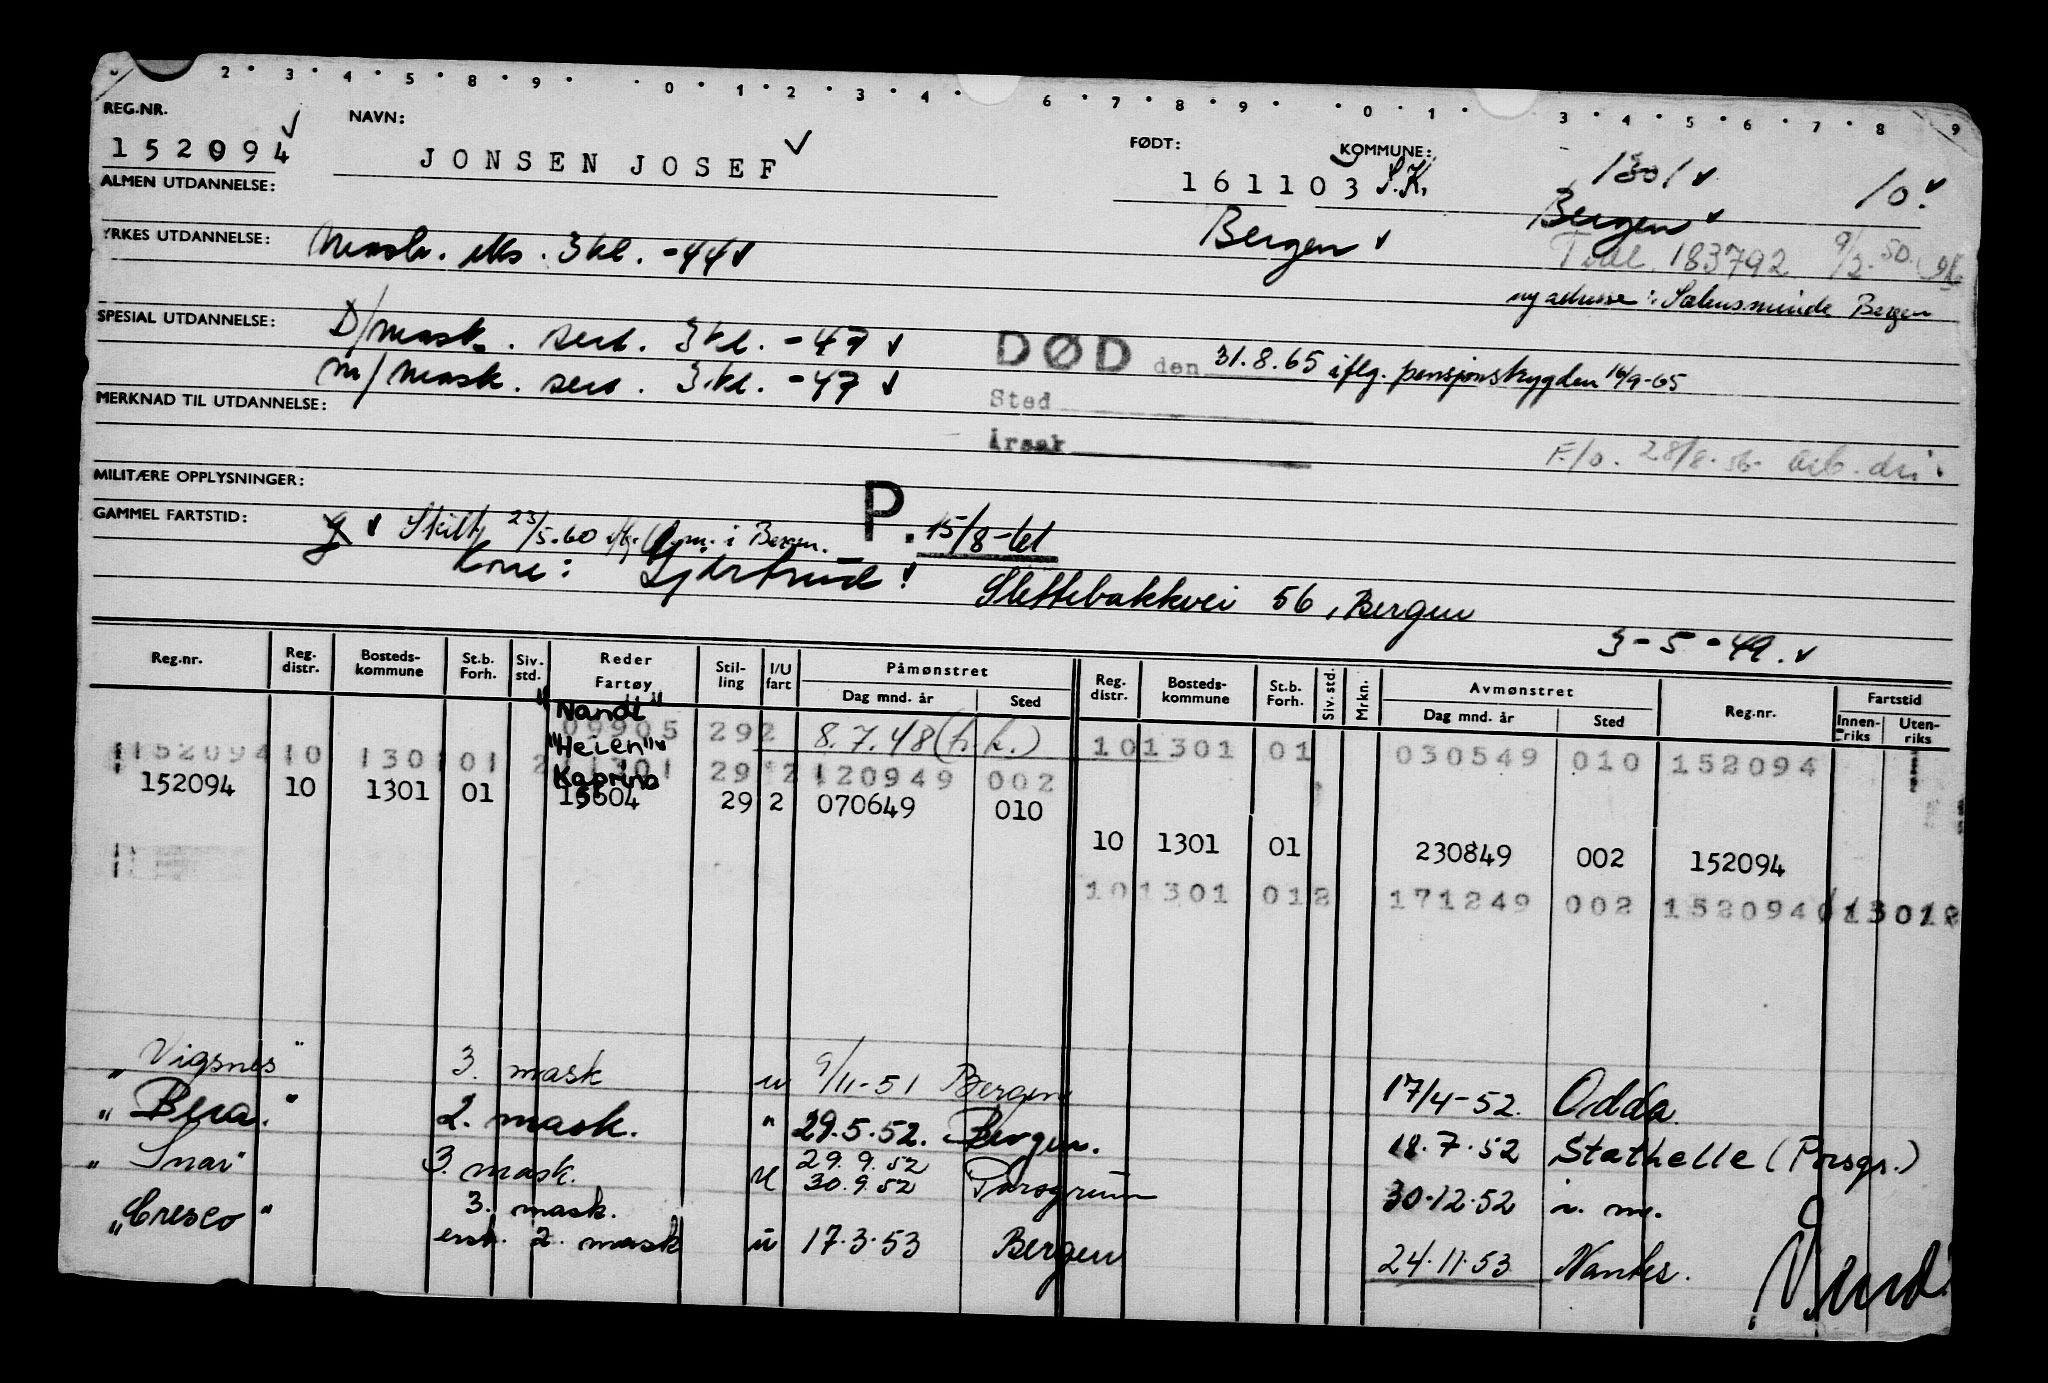 2 3 4 5 8 9 0 1 2 3 4 6 7 8 9 0 1 3 4 5 6 7 8 9
REG.NR. NAVN: FØDT: KOMMUNE:
152094 JONSEN JOSEF 161103 S.K. 1301 10.
ALMEN UTDANNELSE: Bergen Bergen
YRKES UTDANNELSE: Mask. eks. 3 kl. -44 Tidl. 183792 9/2.50.
ny adresse: Bergen
SPESIAL UTDANNELSE: D/mask. sert. 3 kl. -47 DØD den 31.8.65 iflg. pensjonstrygden 16/9-65
m/mask. sert. 3.kl. -47 Sted
MERKNAD TIL UTDANNELSE: Årsak
F/o. 28/8.56.
MILITÆRE OPPLYSNINGER:
GAMMEL FARTSTID: g Skilt 23/5.60 i Bergen. P. 15/8-61
Kone: Gjertrud Slettebakkvei 56, Bergen
3-5-49.
Reg.nr. Reg. distr. Bosteds-kommune St.b. Forh. Siv. std. Reder Fartøy Stil-ling I/U fart Påmønstret Dag mnd. år Sted Reg. distr. Bosteds-kommune St.b. Forh. Siv. std. Mrkn. Avmønstret Dag mnd. år Sted Reg.nr. Fartstid Innen-riks Uten-riks
"Nandi"
09905 292 8.7.48 (h.k.) 10 1301 01 030549 010 152094
"Heien"
152094 10 1301 01 29 2 120949 002
Kaprino
152094 10 1301 01 15604 29 2 070649 010
10 1301 01 230849 002 152094
10 1301 012 171249 002 152094
"Vigsnes" 3. mask u 9/11-51 Bergen 17/4-52. Odda
"Bera." 2. mask. " 29.5.52. Bergen. 18.7.52 Stathelle (Porsgr.)
"Snar" 3. mask. u 29.9.52 30.9.52 Porsgrunn 30.12.52 i. m.
"Cresco" 3. mask.
enst. 2. mask u 17.3.53 Bergen 24.11.53 Nantes.